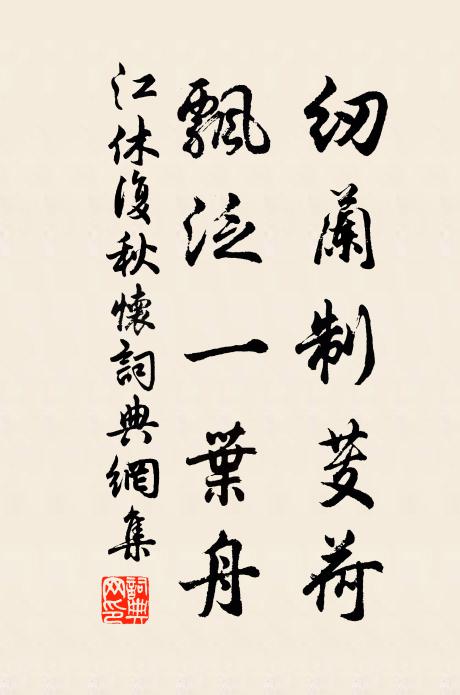 紉蘭制芰荷
飄泛一葉舟
江休復秋懷詞典網集
詞典網印